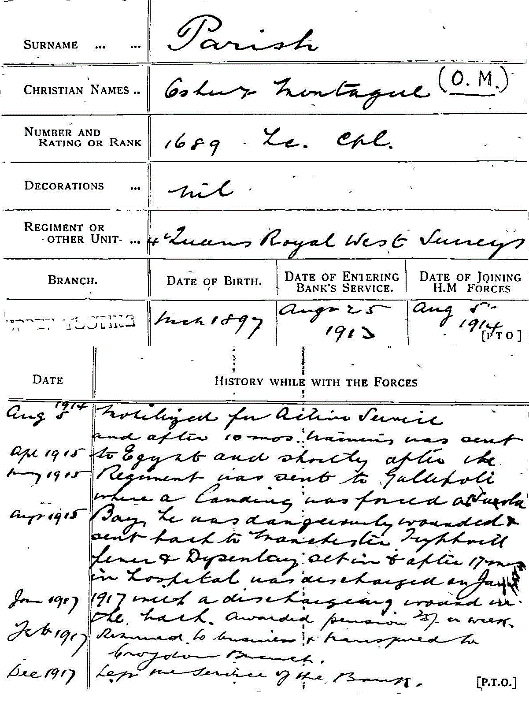 SURNAME ... ... Parish
CHRISTIAN NAMES .. Montague (O.M.)
NUMBER AND
RATING OR RANK 1689 Lc. Cpl.
DECORATIONS ... nil
REGIMENT OR
OTHER UNIT ... 4th Queens Royal West Surreys
BRANCH. DATE OF BIRTH. DATE OF ENTERING
BANK'S SERVICE. DATE OF JOINING
H.M FORCES
UPPER TOOTING Mch 1897 Aug 25
1913 Aug 5
1914
[P.T.O]
DATE HISTORY WHILE WITH THE FORCES
Aug 5 1914 Mobilized for Active Service
and after 10 mos. training was sent
Apl 1915 to Egypt and shortly after the
May 1915 Regiment was sent to Gallipoli
where a landing was forced at Suvla
Aug 1915 Bay, he was dangerously wounded &
sent back to Manchester Typhoid
fever & Dysentery set in & after 17 mos
in hospital was discharged on Jany
Jan 1917 1917 with a discharging wound in
the back. Awarded pension a week.
Feb 1917 Returned to business & transferred to
Croydon Branch.
Dec 1917 Left the service of the Bank.
[P.T.O.]